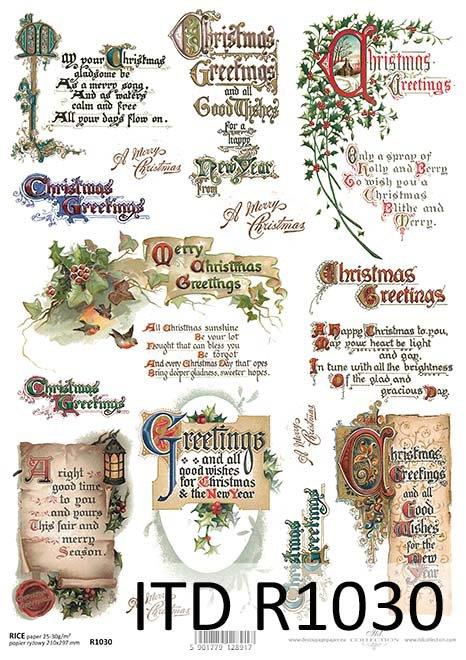 May your Christmas
gladsome be
As a merry song,
And as waters
calm and free
All your days flow on.
Christmas
Greetings
and all
Good Wishes
for a
happy
New Year
from
Christmas
Greetings
Only a spray of
Holly and Berry
To wish you a
Christmas
Blithe and
Merry.
A Merry
Christmas
Christmas
Greetings
A Merry
Christmas
Merry
Christmas
Greetings
All Christmas sunshine
Be your lot
Nought that can bless you
Be forgot
And every Christmas Day that opes
Bring deeper gladness, sweeter hopes.
Christmas
Greetings
A Happy Christmas to you,
May your heart be light
and gay,
In tune with all the brightness
Of the glad and
gracious Day.
Christmas
Greetings
A right
good time
to you
and yours
This fair and
merry
Season.
Greetings
and all
good wishes
for Christmas
& the New Year
A Merry
Christmas
Christmas
Greetings
Christmas
Greetings
and all
Good
Wishes
for the
New
Year
A Merry
Christmas
ITD R1030
RICE paper 25-30g/m²
papier ryżowy 210x297 mm
R1030
5 901779 128917
www.decoupagepaper.eu
ITD
COLLECTION
www.itdcollection.com